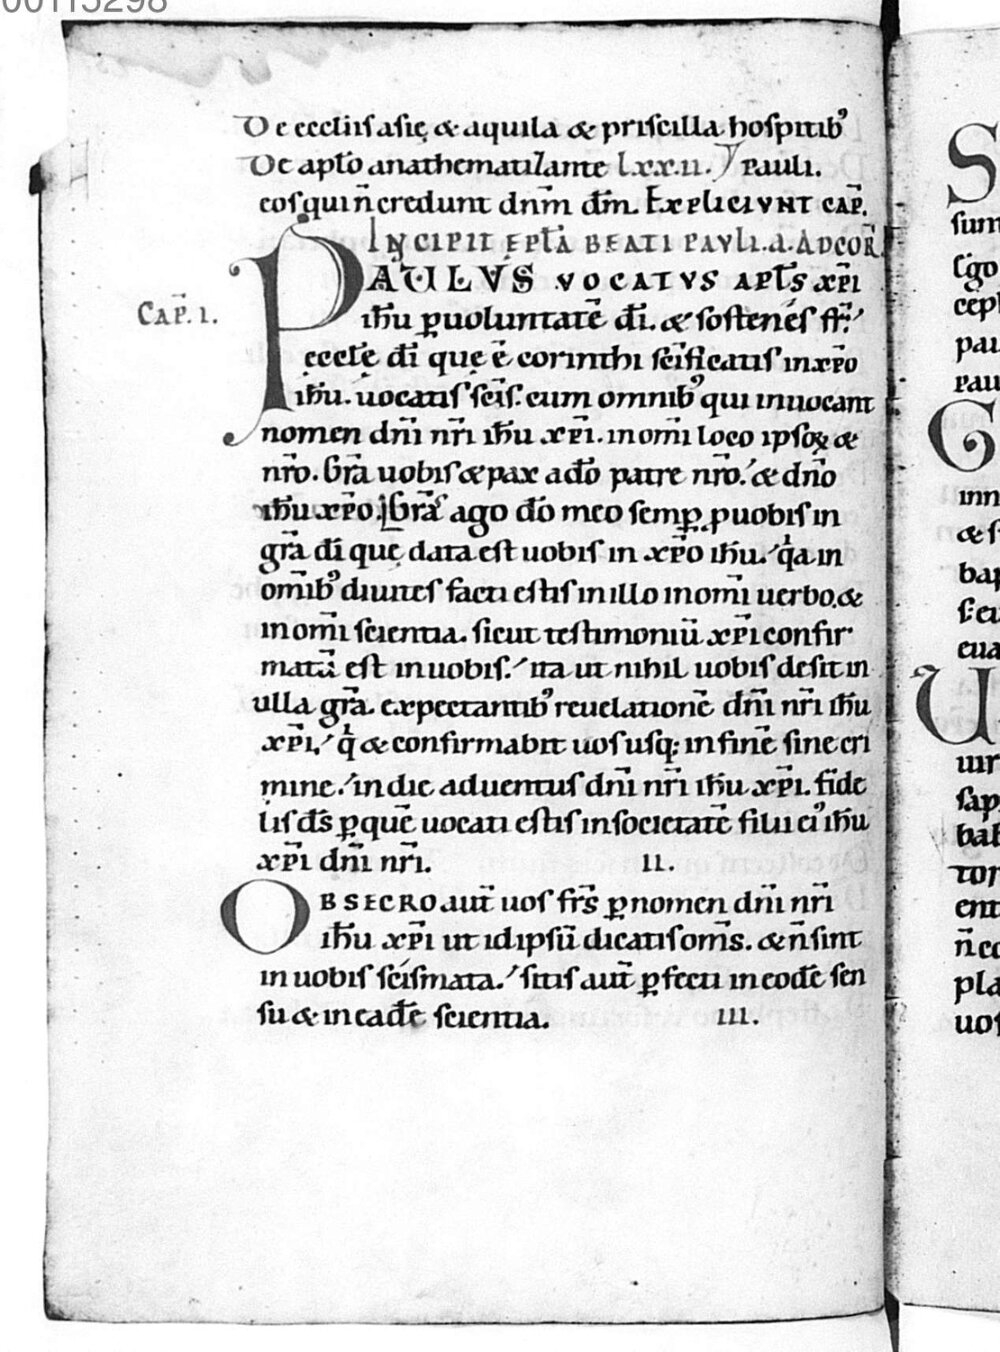 00115298
De eccliis asię & aquila & priscilla hospitib᾽
De apl̄o anathematizante lxx.ii. Pauli.
eos qui n̄ credunt dn̄m dm̄. Expliciunt cap̄.
Incipit ep̄tl̄a beati Pauli .i. ad Cor̄.
Cap̄. I.
PAULUS VOCATUS APL̄S XP̄I
ih̄u ꝑ uoluntatē dī. & sostenés fr̄.
ęccłę dī quę ē corinthi sc̄ificatis in xp̄o
ih̄u. uocatis sc̄is. cum omnib᾽ qui inuocant
nomen dn̄i nr̄i ih̄u xp̄i. in om̄i loco ipsoꝝ &
nr̄o. Gr̄a uobis & pax a dō patre nr̄o. & dn̄o
ih̄u xp̄o. Gr̄as ago dō meo semꝑ ꝓ uobis in
gr̄a dī quę data est uobis in xp̄o ih̄u. qͥa in
om̄ib᾽ diuites facti estis in illo in om̄i uerbo. &
in om̄i scientia. sicut testimoniū xp̄i confir
matū est in uobis. ita ut nihil uobis desit in
ulla gr̄a. expectantib᾽ reuelationē dn̄i nr̄i ih̄u
xp̄i. qͥ & confirmabit uos usq; in finē sine cri
mine. in die aduentus dn̄i nr̄i ih̄u xp̄i. fide
lis ds̄ ꝑ quē uocati estis in societatē filii ei᾽ ih̄u
xp̄i dn̄i nr̄i. II.
OBSECRO aut̄ uos fr̄s ꝑ nomen dn̄i nr̄i
ih̄u xp̄i ut idipsū dicatis om̄s. & n̄ sint
in uobis scísmata. sitis aut̄ ꝑfecti in eodē sen
su & in eadē scientia. III.
S
sum
ceph
pau
Pau
G
inn
bap
U
uir
sap
bab
tor
ent
pla
uos